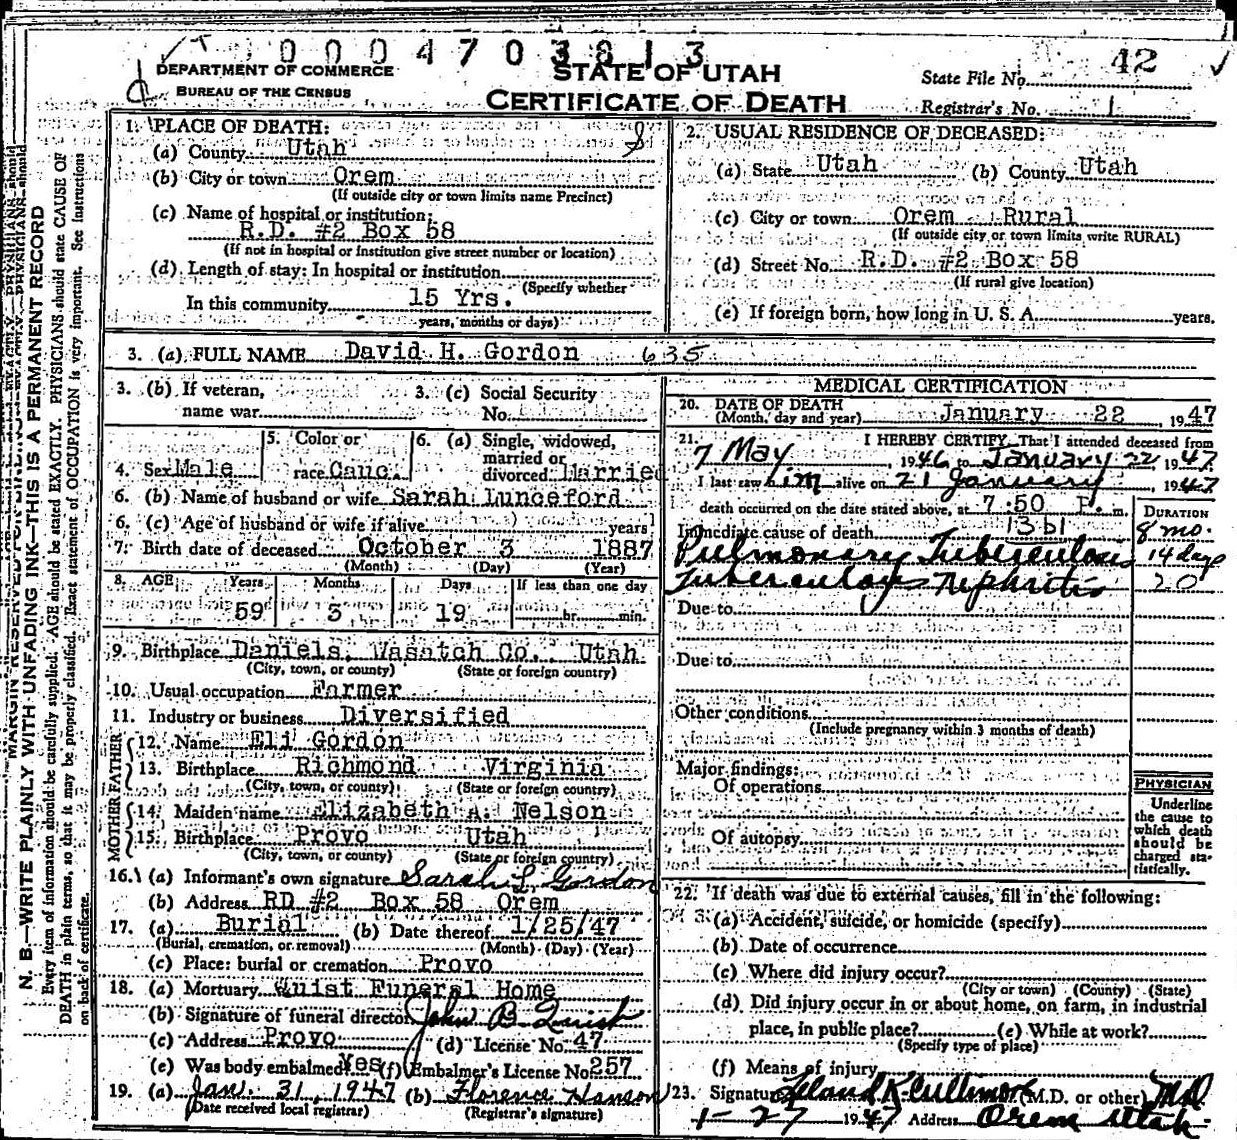 0004703813
DEPARTMENT OF COMMERCE
BUREAU OF THE CENSUS
STATE OF UTAH
CERTIFICATE OF DEATH
State File No. 42
Registrar's No. 1
1. PLACE OF DEATH:
(a) County Utah
(b) City or town Orem
(If outside city or town limits name Precinct)
(c) Name of hospital or institution:
R.D. #2 Box 58
(If not in hospital or institution give street number or location)
(d) Length of stay: In hospital or institution
(Specify whether
In this community 15 Yrs.
years, months or days)
2. USUAL RESIDENCE OF DECEASED:
(a) State Utah (b) County Utah
(c) City or town Orem Rural
(If outside city or town limits write RURAL)
(d) Street No. R.D. #2 Box 58
(If rural give location)
(e) If foreign born, how long in U. S. A. years.
3. (a) FULL NAME David H. Gordon 635
3. (b) If veteran, name war
3. (c) Social Security No.
4. Sex Male
5. Color or race Cauc.
6. (a) Single, widowed, married or divorced Married
6. (b) Name of husband or wife Sarah Lunceford
6. (c) Age of husband or wife if alive years
7. Birth date of deceased October 3 1887
(Month) (Day) (Year)
8. AGE Years Months Days If less than one day
59 3 19 hr. min.
9. Birthplace Daniels, Wasatch Co., Utah
(City, town, or county) (State or foreign country)
10. Usual occupation Farmer
11. Industry or business Diversified
FATHER
12. Name Eli Gordon
13. Birthplace Richmond Virginia
(City, town, or county) (State or foreign country)
MOTHER
14. Maiden name Elizabeth A. Nelson
15. Birthplace Provo Utah
(City, town, or county) (State or foreign country)
16. (a) Informant's own signature Sarah L. Gordon
(b) Address RD #2 Box 58 Orem
17. (a) Burial (b) Date thereof 1/25/47
(Burial, cremation, or removal) (Month) (Day) (Year)
(c) Place: burial or cremation Provo
18. (a) Mortuary Quist Funeral Home
(b) Signature of funeral director John B Quist
(c) Address Provo (d) License No. 47
(e) Was body embalmed Yes (f) Embalmer's License No. 257
19. (a) Jan. 31, 1947 (b) Florence Hanson
(Date received local registrar) (Registrar's signature)
MEDICAL CERTIFICATION
20. DATE OF DEATH
(Month, day and year) January 22, 1947
21. I HEREBY CERTIFY That I attended deceased from
7 May, 1946 to January 22, 1947
I last saw him alive on 21 January 1947
death occurred on the date stated above, at 7:50 P. m.
DURATION
Immediate cause of death 13b1 8 mo.
Pulmonary Tuberculosis 14 days
Tuberculous Nephritis 20
Due to
Due to
Other conditions
(Include pregnancy within 3 months of death)
Major findings:
Of operations
Of autopsy
PHYSICIAN
Underline
the cause to
which death
should be
charged sta-
tistically.
22. If death was due to external causes, fill in the following:
(a) Accident, suicide, or homicide (specify)
(b) Date of occurrence
(c) Where did injury occur?
(City or town) (County) (State)
(d) Did injury occur in or about home, on farm, in industrial
place, in public place? (e) While at work?
(Specify type of place)
(f) Means of injury
23. Signature Leland K Cullimore (M.D. or other) M.D.
1-27 1947 Address Orem Utah
N. B.—WRITE PLAINLY WITH UNFADING INK—THIS IS A PERMANENT RECORD
Every item of information should be carefully supplied. AGE should be stated EXACTLY. PHYSICIANS should state CAUSE OF
DEATH in plain terms, so that it may be properly classified. Exact statement of OCCUPATION is very important. See instructions
on back of certificate.